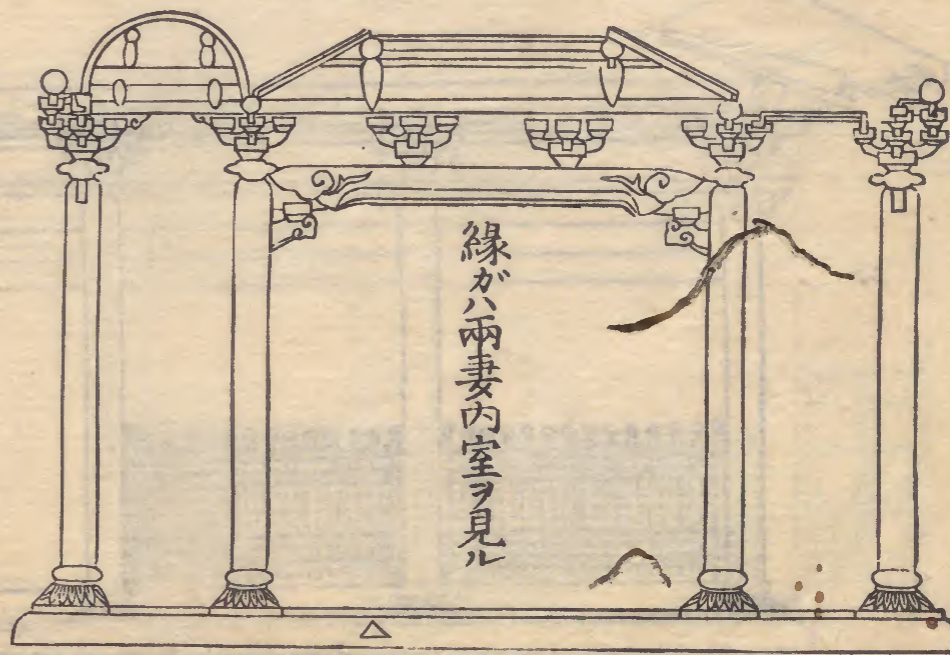 縁がハ兩妻内室ヲ見ル